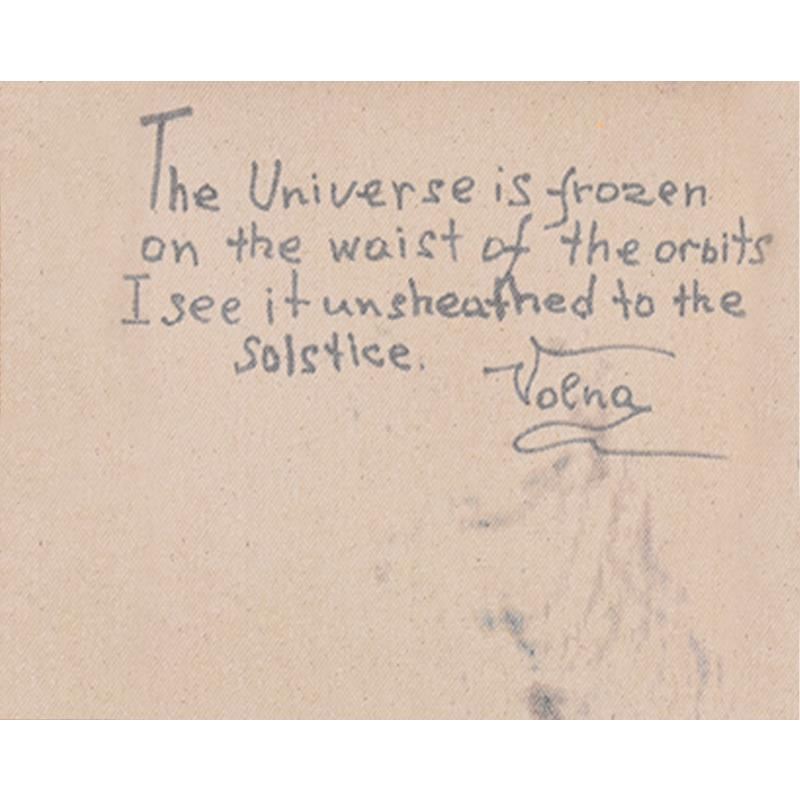 The Universe is frozen
on the waist of the orbits
I see it unsheathed to the
solstice.
Volna